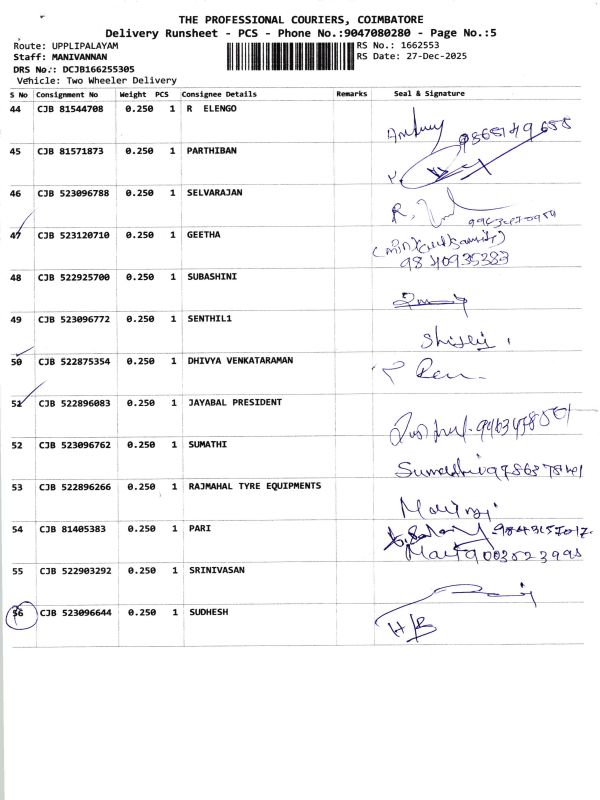 THE PROFESSIONAL COURIERS, COIMBATORE
Delivery Runsheet - PCS - Phone No.:9047080280 - Page No.:5
Route: UPPLIPALAYAM RS No.: 1662553
Staff: MANIVANNAN RS Date: 27-Dec-2025
DRS No.: DCJB166255305
Vehicle: Two Wheeler Delivery
S No Consignment No Weight PCS Consignee Details Remarks Seal & Signature
44 CJB 81544708 0.250 1 R ELENGO
45 CJB 81571873 0.250 1 PARTHIBAN
46 CJB 523096788 0.250 1 SELVARAJAN
47 CJB 523120710 0.250 1 GEETHA
9840935383
48 CJB 522925700 0.250 1 SUBASHINI
49 CJB 523096772 0.250 1 SENTHIL1
50 CJB 522875354 0.250 1 DHIVYA VENKATARAMAN
51 CJB 522896083 0.250 1 JAYABAL PRESIDENT
52 CJB 523096762 0.250 1 SUMATHI
53 CJB 522896266 0.250 1 RAJMAHAL TYRE EQUIPMENTS
54 CJB 81405383 0.250 1 PARI
55 CJB 522903292 0.250 1 SRINIVASAN
56 CJB 523096644 0.250 1 SUDHESH